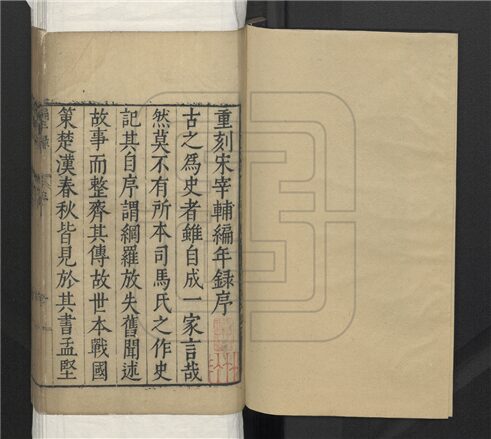 重刻宋宰輔編年録序
古之為史者雖自成一家言哉
然莫不有所本司馬氏之作史
記其自序謂綱羅放失舊聞述
故事而整齊其傳故世本戰國
策楚漢春秋皆見於其書孟堅